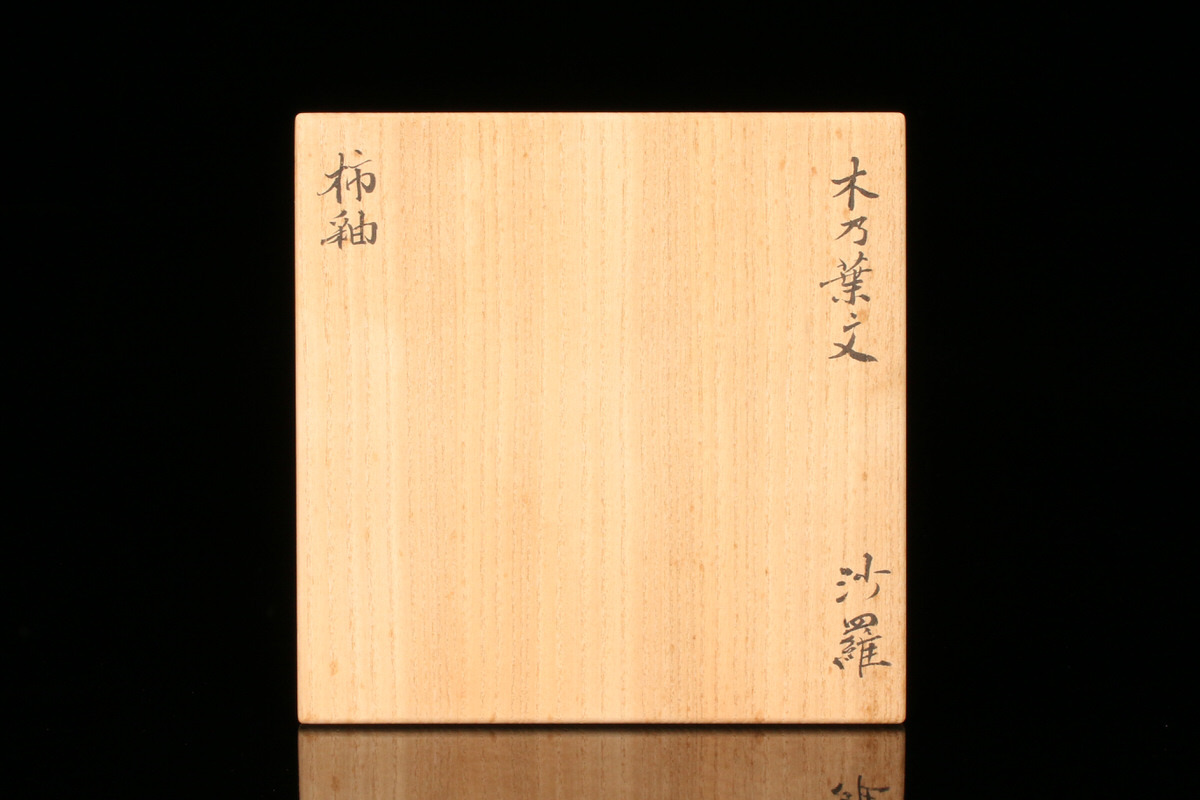 木乃葉文
沙羅
柿釉